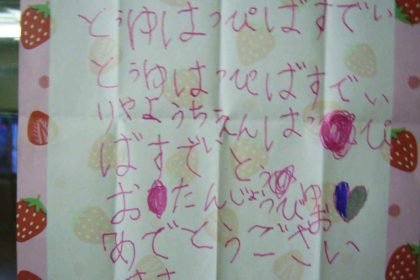 とぅゆはっぴばすでい
とぅゆはっぴばすでい
りやようちえんはっぴ
ばすでいとぅ
おたんじょうびお
めでとうござい
ます